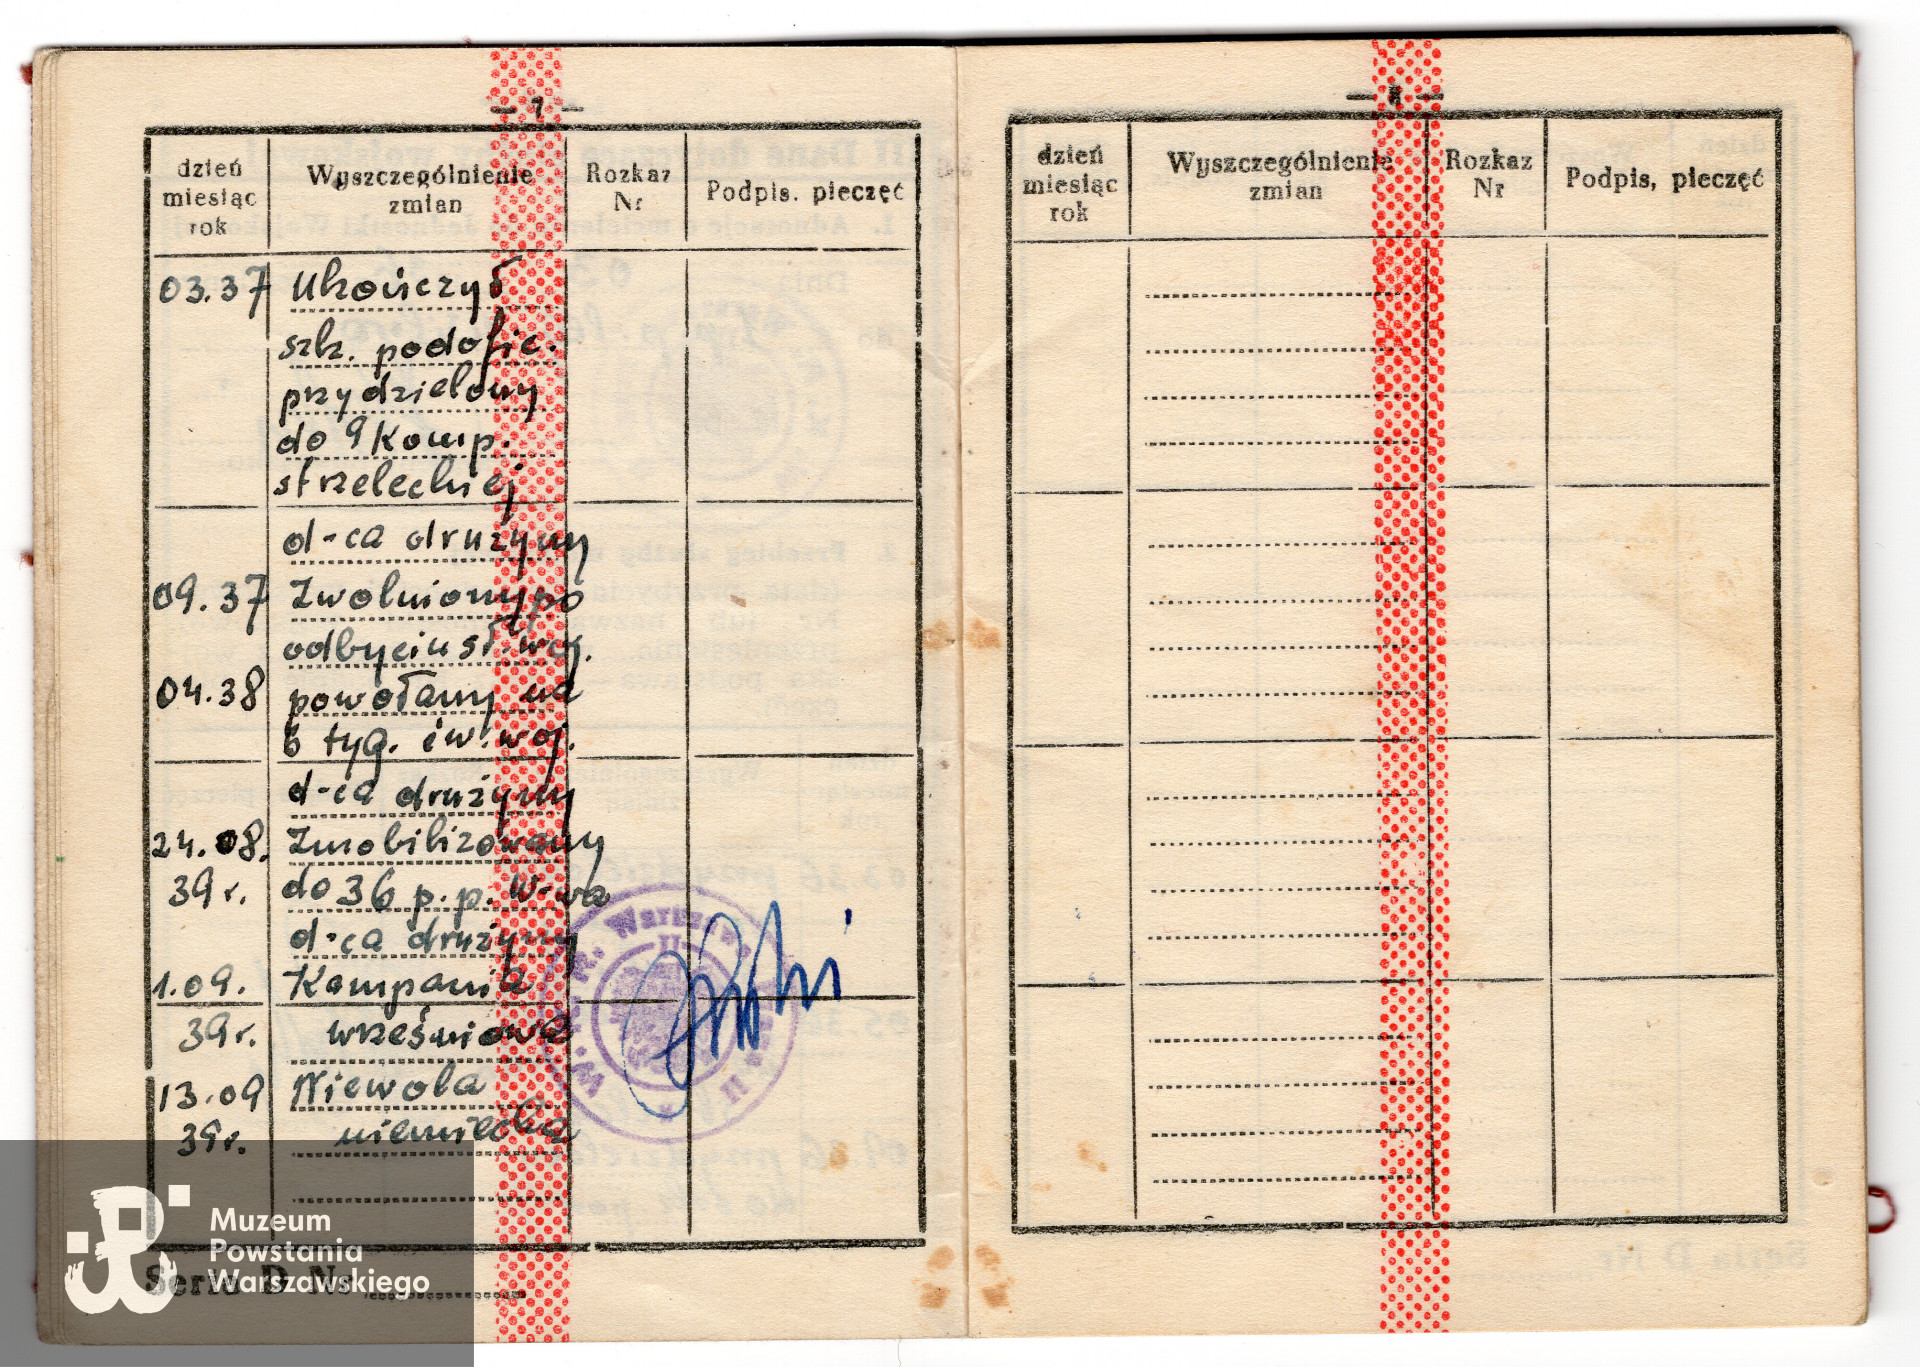 — 7 —
dzień miesiąc rok
Wyszczególnienie zmian
Rozkaz Nr
Podpis. pieczęć
03.37 Ukończył
szk. podofic.
przydzielony
do 9 Komp.
strzeleckiej
d-ca drużyny
09.37 Zwolniony po
odbyciu sł. woj.
04.38 powołany na
6 tyg. ćw. woj.
d-ca drużyny
24.08. Zmobilizowany
39 r. do 36 p.p. W-wa
d-ca drużyny
1.09. Kampania
39 r. wrześniowa
13.09 Niewola
39 r. niemiecka
Seria D Nr
— 8 —
dzień miesiąc rok
Wyszczególnienie zmian
Rozkaz Nr
Podpis, pieczęć
Muzeum
Powstania
Warszawskiego